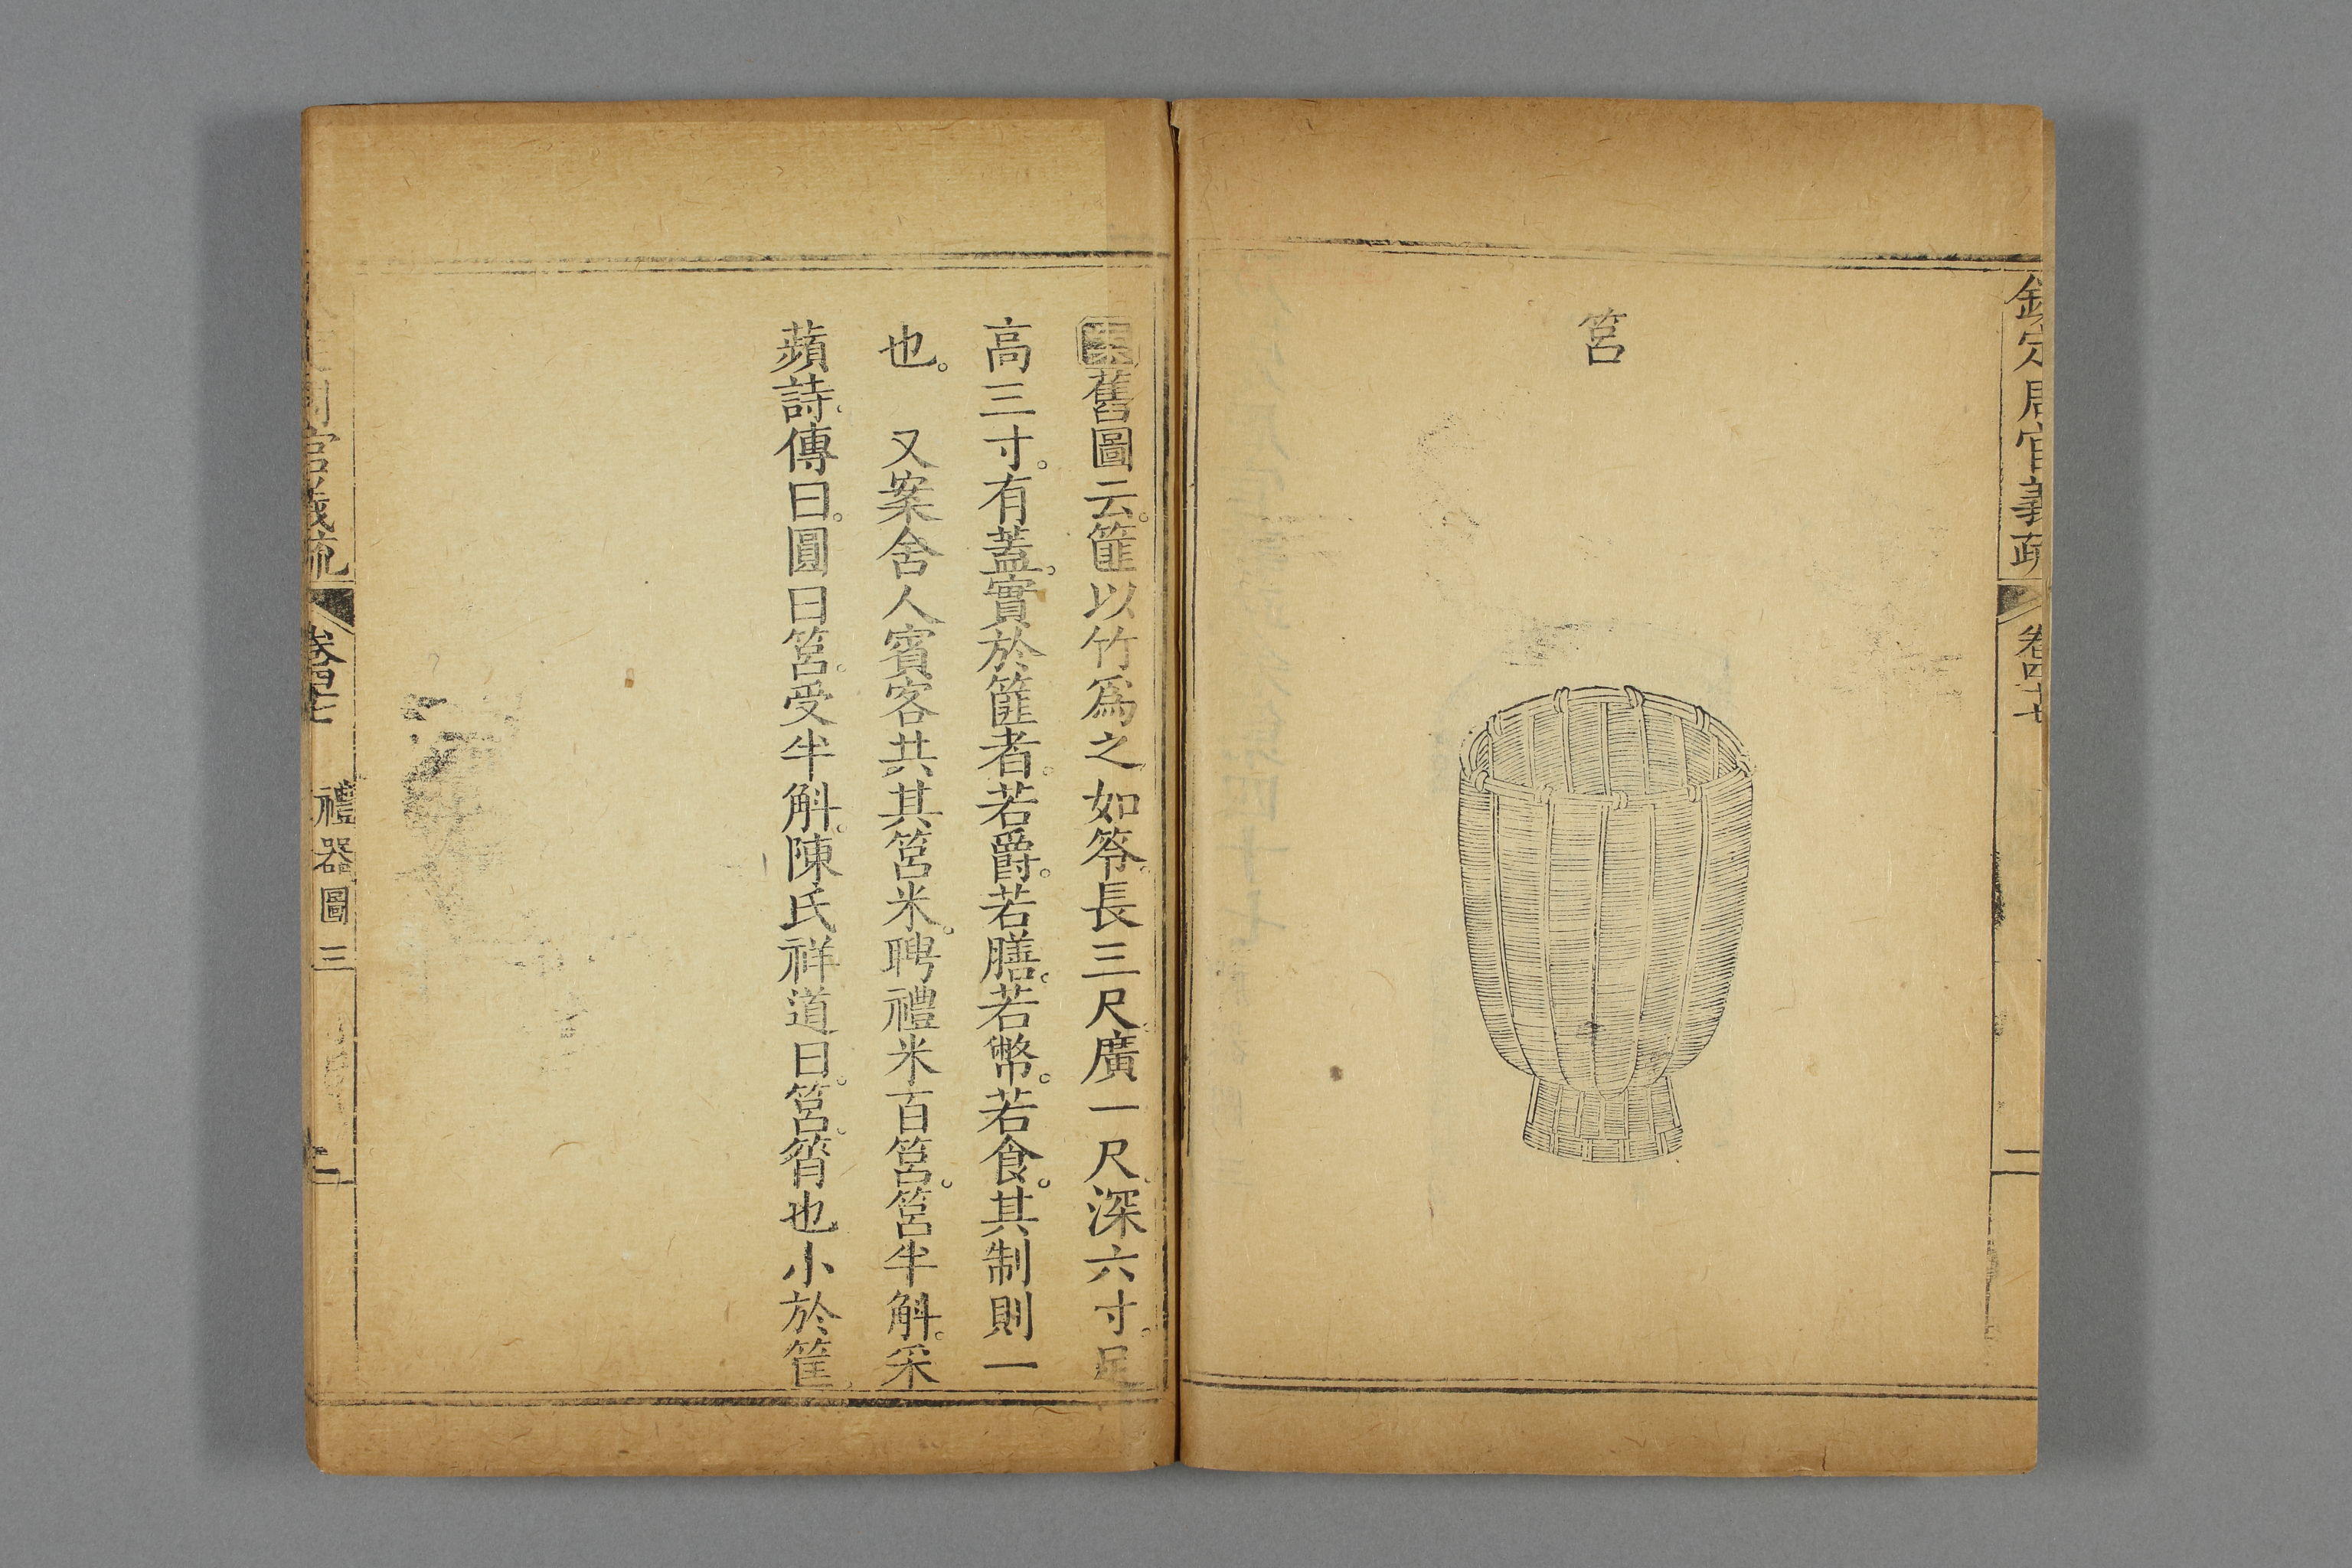 欽定周官義疏 卷四十七 二
筥
案舊圖云。篚以竹爲之如笭。長三尺。廣一尺。深六寸。足
高三寸。有蓋。實於篚者。若爵。若膳。若幣。若食。其制則一
也。 又案舍人賓客共其筥米。聘禮米百筥。筥半斛。采
蘋詩。傳曰。圓曰筥。受半斛。陳氏祥道曰。筥。筲也小於筐。
周官義疏 卷四十七 禮器圖三 二